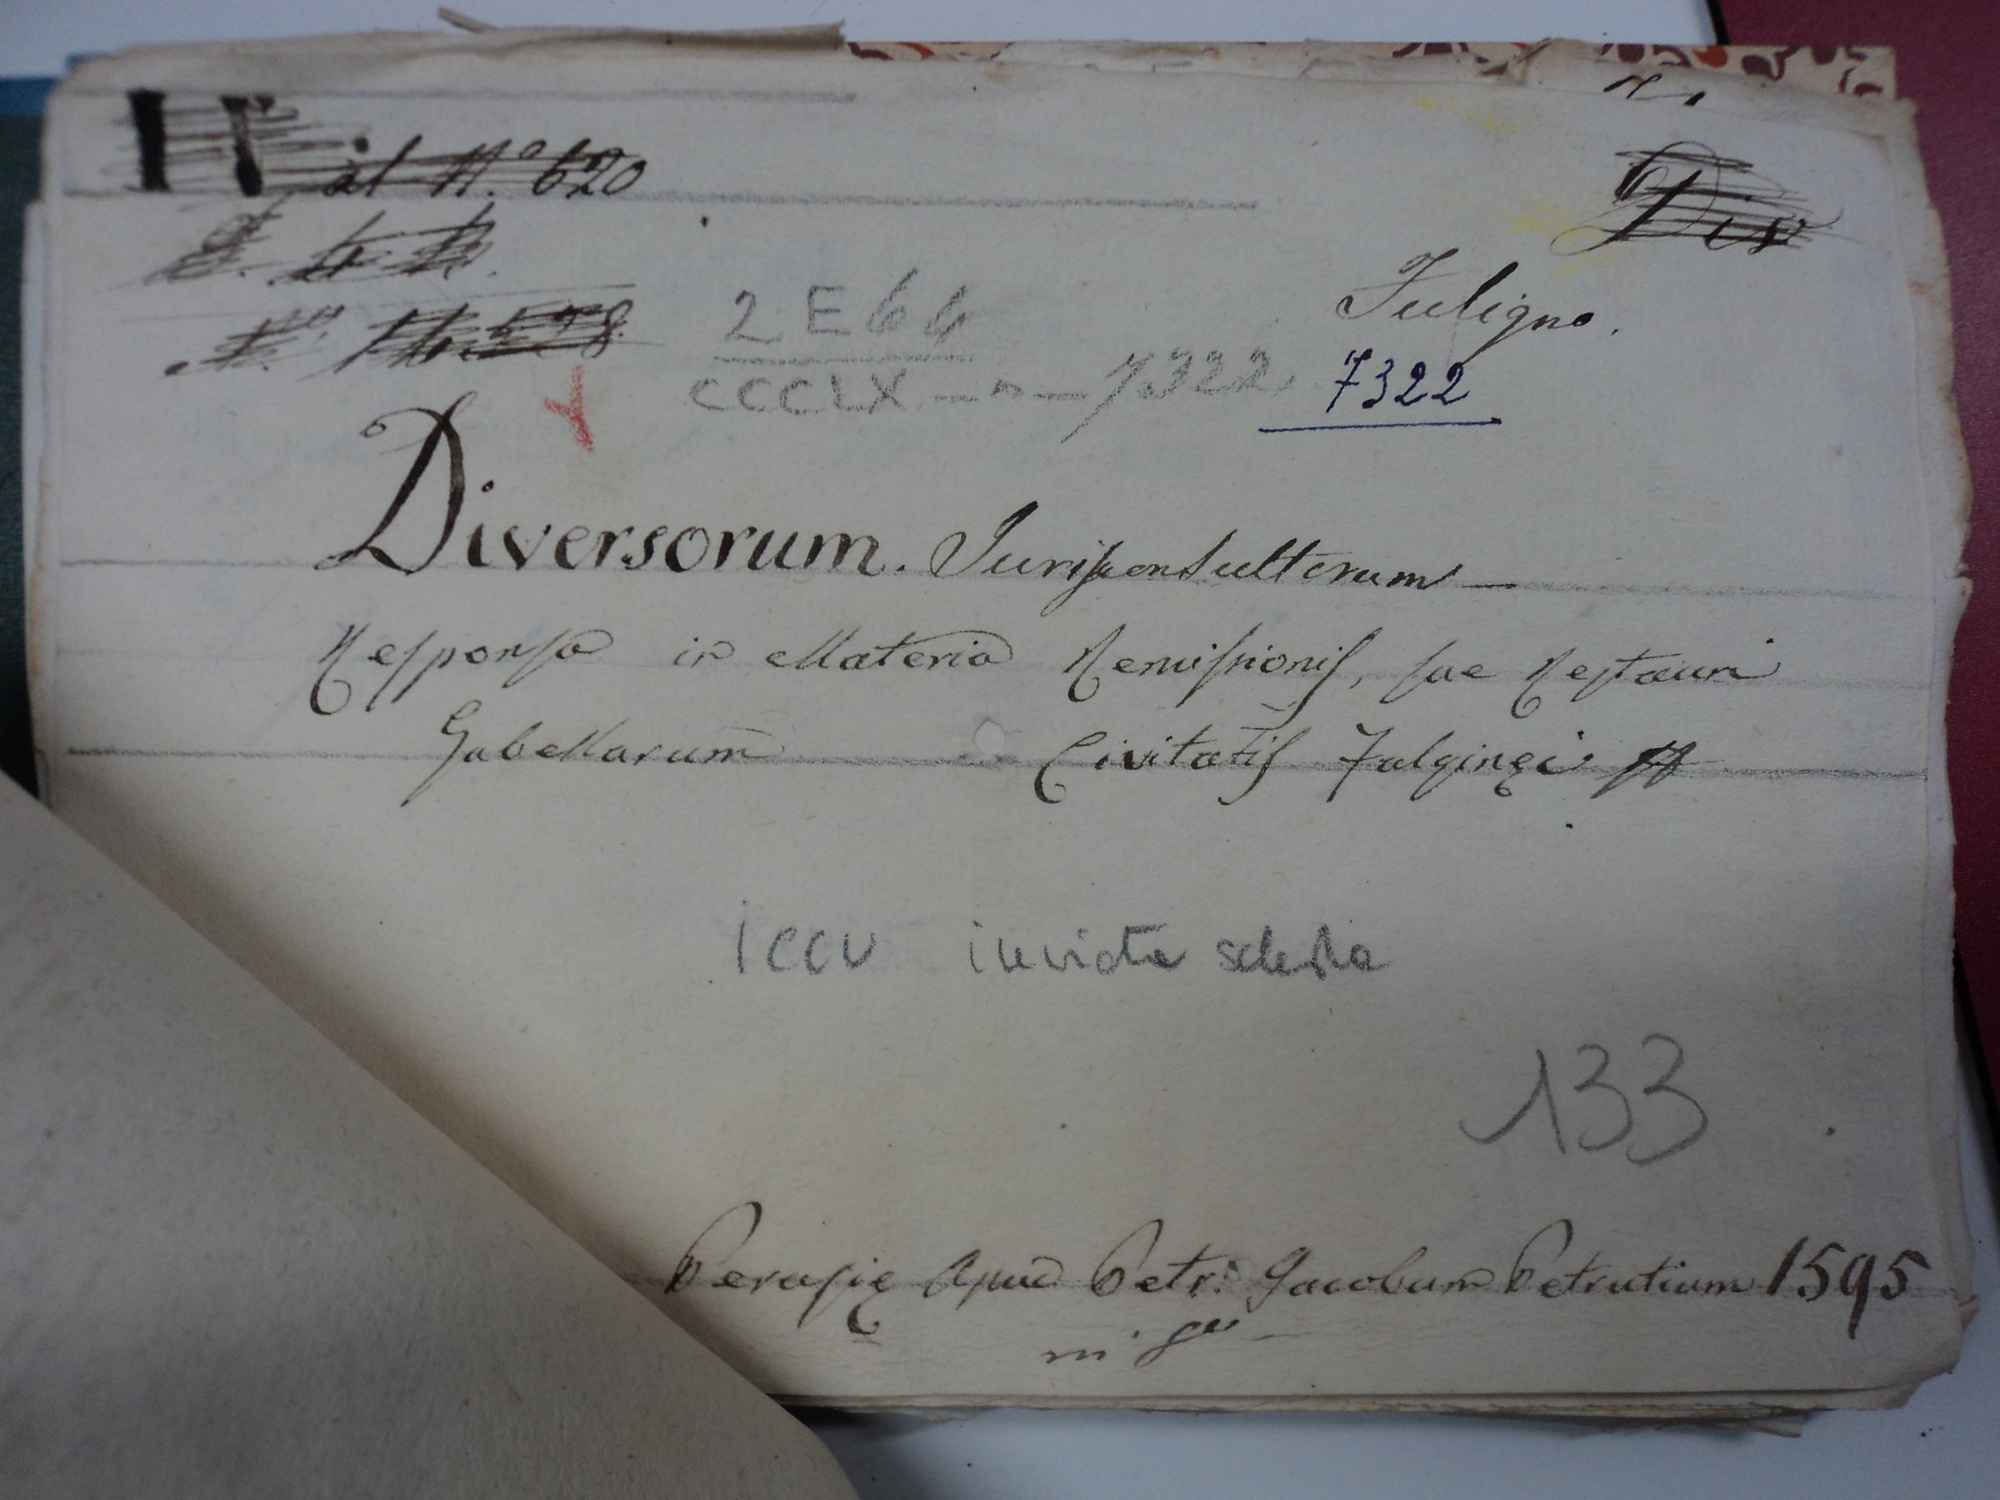 al N.º 620
Div
Fuligno.
2 E 64
CCCLX — n — 7322
7322
Diversorum. Jurisponsultorum —
Responsa in Materia Remissionis, sue Restauri
Gabellarum Civitatis Fulginęi
ICCU inviata scheda
133
Perusię Apud Petr: Jacobum Petrutium 1595
in 8º